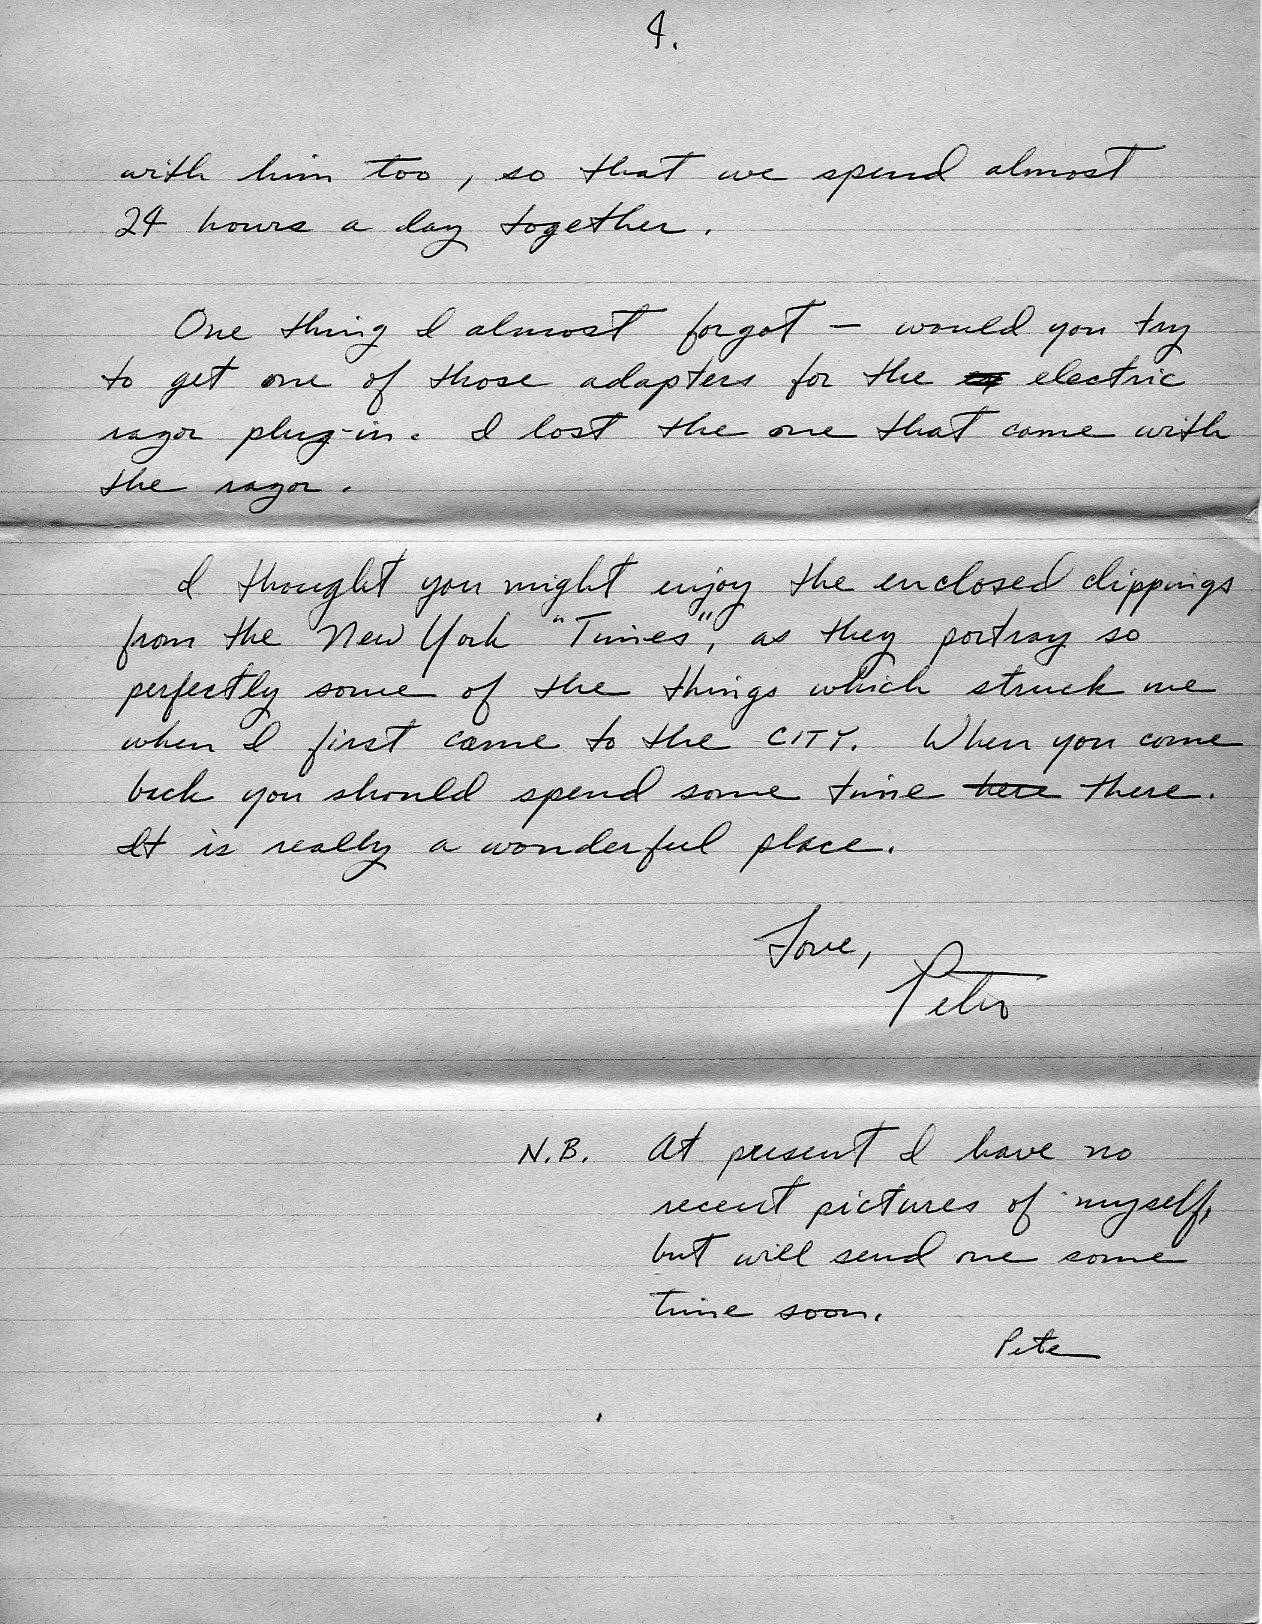 4.
with him too, so that we spend almost
24 hours a day together.
One thing I almost forgot — would you try
to get one of those adapters for the electric
razor plug-in. I lost the one that came with
the razor.
I thought you might enjoy the enclosed clippings
from the New York "Times", as they portray so
perfectly some of the things which struck me
when I first came to the CITY. When you come
back you should spend some time here there.
It is really a wonderful place.
Love,
Peter
N.B. At present I have no
recent pictures of myself,
but will send one some
time soon.
Pete